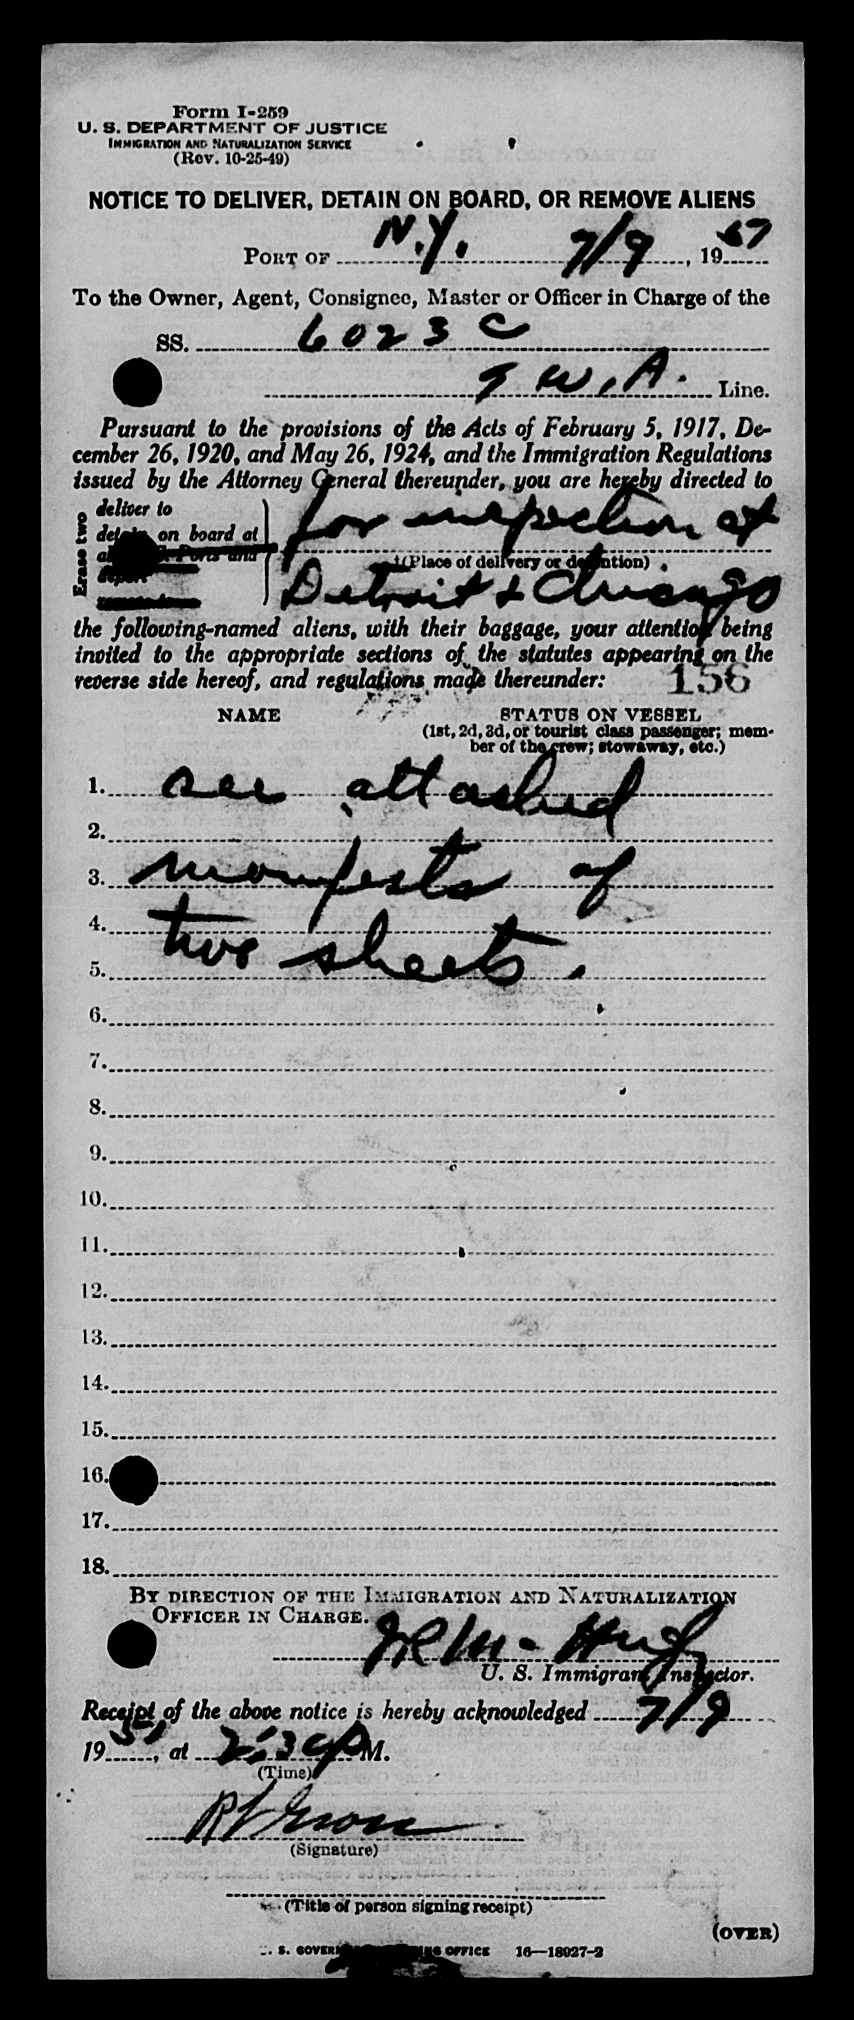 Form I-259
U. S. DEPARTMENT OF JUSTICE
IMMIGRATION AND NATURALIZATION SERVICE
(Rev. 10-25-49)
NOTICE TO DELIVER, DETAIN ON BOARD, OR REMOVE ALIENS
PORT OF N.Y. 7/9, 19
To the Owner, Agent, Consignee, Master or Officer in Charge of the
SS. 6023 C
T W. A. Line.
Pursuant to the provisions of the Acts of February 5, 1917, De-
cember 26, 1920, and May 26, 1924, and the Immigration Regulations
issued by the Attorney General thereunder, you are hereby directed to
Erase two
deliver to
detain on board at
for inspection at
(Place of delivery or detention)
Detroit & Chicago
the following-named aliens, with their baggage, your attention being
invited to the appropriate sections of the statutes appearing on the
reverse side hereof, and regulations made thereunder: 156
NAME STATUS ON VESSEL
(1st, 2d, 3d, or tourist class passenger; mem-
ber of the crew; stowaway, etc.)
1. see attached
2.
3. manifests of
4.
5. two sheets.
6.
7.
8.
9.
10.
11.
12.
13.
14.
15.
16.
17.
18.
BY DIRECTION OF THE IMMIGRATION AND NATURALIZATION
OFFICER IN CHARGE.
U. S. Immigrant Inspector.
Receipt of the above notice is hereby acknowledged 7/9
19, at 2:30 P M.
(Time)
(Signature)
(Title of person signing receipt)
(OVER)
U. S. GOVERNMENT PRINTING OFFICE 16—18027-2